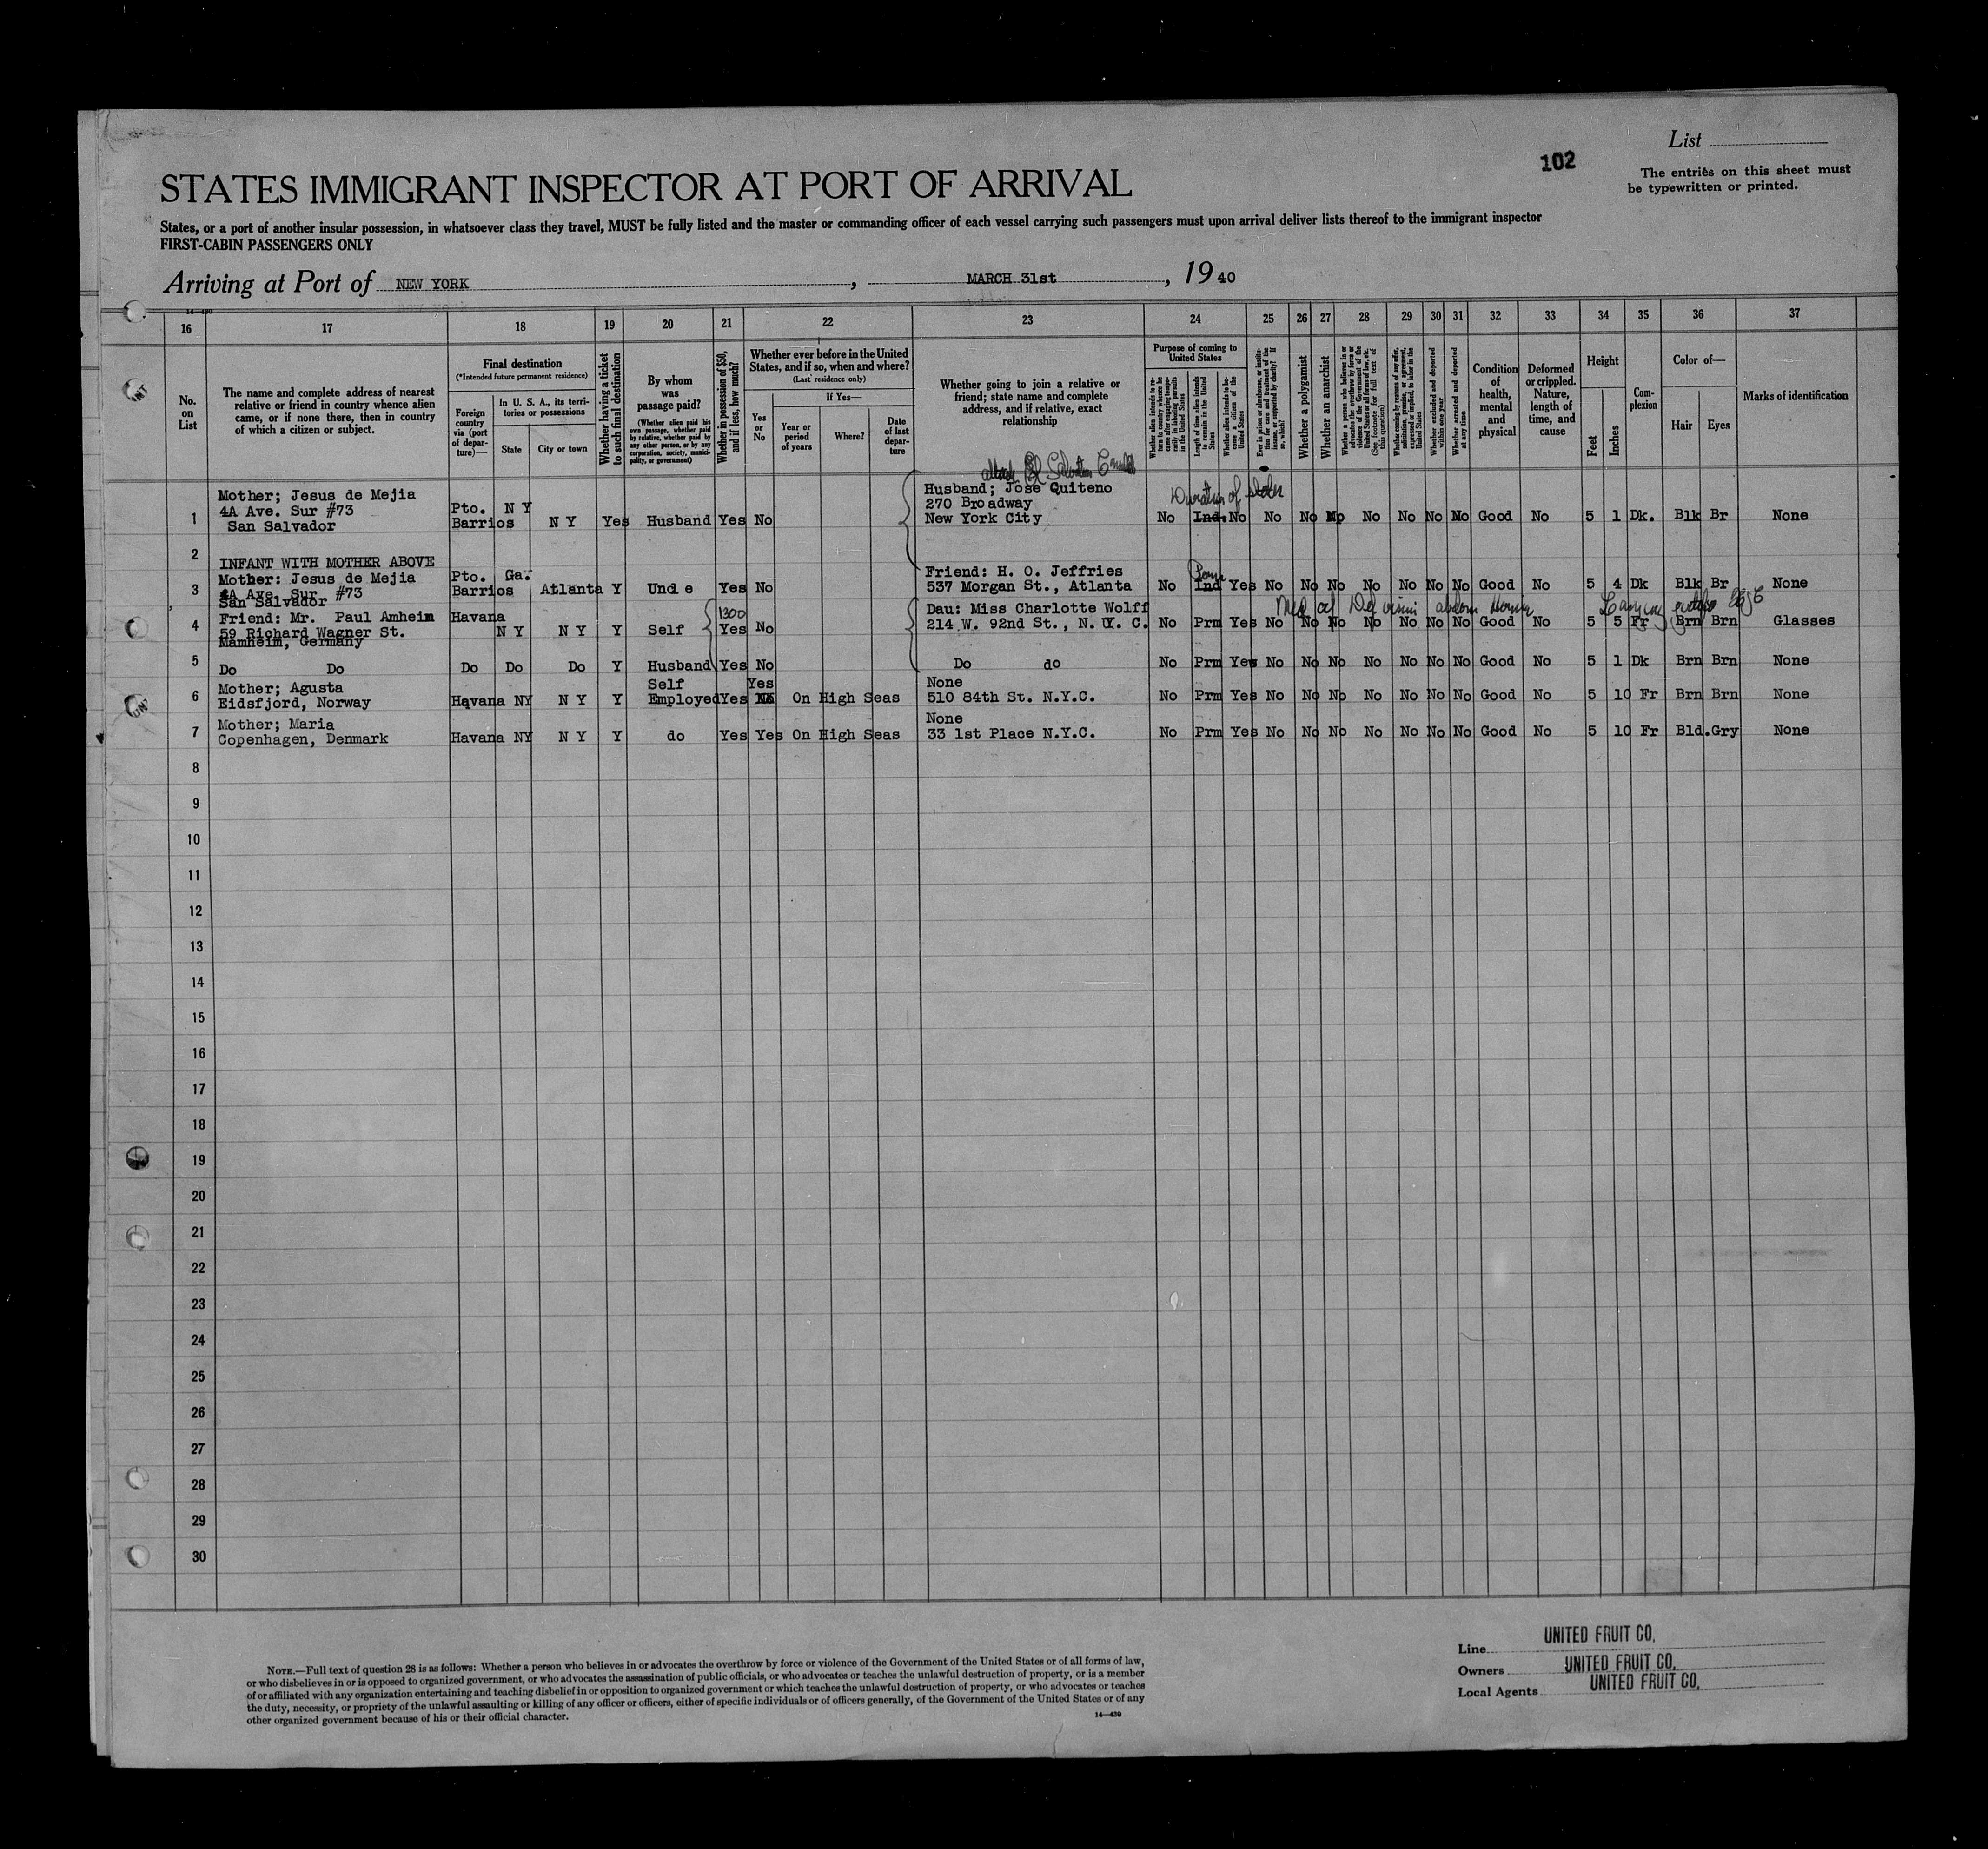 List
102
The entries on this sheet must
be typewritten or printed.
STATES IMMIGRANT INSPECTOR AT PORT OF ARRIVAL
States, or a port of another insular possession, in whatsoever class they travel, MUST be fully listed and the master or commanding officer of each vessel carrying such passengers must upon arrival deliver lists thereof to the immigrant inspector
FIRST-CABIN PASSENGERS ONLY
Arriving at Port of NEW YORK, MARCH 31st, 19 40
16 17 18 19 20 21 22 23 24 25 26 27 28 29 30 31 32 33 34 35 36 37
No. on List
The name and complete address of nearest
relative or friend in country whence alien
came, or if none there, then in country
of which a citizen or subject.
Final destination
(*Intended future permanent residence)
Foreign country via (port of departure)—
In U. S. A., its territories or possessions
State
City or town
Whether having a ticket to such final destination
By whom was passage paid?
(Whether alien paid his own passage, whether paid by relative, whether paid by any other person, or by any corporation, society, municipality, or government)
Whether in possession of $50, and if less, how much?
Whether ever before in the United States, and if so, when and where?
(Last residence only)
Yes or No
If Yes—
Year or period of years
Where?
Date of last departure
Whether going to join a relative or
friend; state name and complete
address, and if relative, exact
relationship
Purpose of coming to United States
Length of time alien intends to remain in the United States
Whether alien intends to become a citizen of the United States
Whether a polygamist
Whether an anarchist
Whether excluded and deported within one year
Whether arrested and deported at any time
Condition of health, mental and physical
Deformed or crippled. Nature, length of time, and cause
Height
Feet
Inches
Complexion
Color of—
Hair
Eyes
Marks of identification
Duration of status
1 Mother; Jesus de Mejia
4A Ave. Sur #73
San Salvador
Pto. Barrios N Y N Y Yes Husband Yes No
Husband; Jose Quiteno
270 Broadway
New York City
No Ind. No No No No No No No No Good No 5 1 Dk. Blk Br None
2 INFANT WITH MOTHER ABOVE
3 Mother: Jesus de Mejia
4A Ave. Sur #73
San Salvador
Pto. Barrios Ga. Atlanta Y Und e Yes No
Friend: H. O. Jeffries
537 Morgan St., Atlanta
No Ind Yes No No No No No No No Good No 5 4 Dk Blk Br None
4 Friend: Mr. Paul Amheim
59 Richard Wagner St.
Mamheim, Germany
Havana N Y N Y Y Self 1300 Yes No
Dau: Miss Charlotte Wolff
214 W. 92nd St., N. Y. C.
No Prm Yes No No No No No No No Good No 5 5 Fr Brn Brn Glasses
5 Do Do Do Do Do Y Husband Yes No Do do No Prm Yes No No No No No No No Good No 5 1 Dk Brn Brn None
6 Mother; Agusta
Eidsfjord, Norway
Havana NY N Y Y Self Employed Yes Yes On High Seas
None
510 84th St. N.Y.C.
No Prm Yes No No No No No No No Good No 5 10 Fr Brn Brn None
7 Mother; Maria
Copenhagen, Denmark
Havana NY N Y Y do Yes Yes On High Seas
None
33 1st Place N.Y.C.
No Prm Yes No No No No No No No Good No 5 10 Fr Bld. Gry None
8
9
10
11
12
13
14
15
16
17
18
19
20
21
22
23
24
25
26
27
28
29
30
NOTE.—Full text of question 28 is as follows: Whether a person who believes in or advocates the overthrow by force or violence of the Government of the United States or of all forms of law,
or who disbelieves in or is opposed to organized government, or who advocates the assassination of public officials, or who advocates or teaches the unlawful destruction of property, or is a member
of or affiliated with any organization entertaining and teaching disbelief in or opposition to organized government or which teaches the unlawful destruction of property, or who advocates or teaches
the duty, necessity, or propriety of the unlawful assaulting or killing of any officer or officers, either of specific individuals or of officers generally, of the Government of the United States or of any
other organized government because of his or their official character.
14—430
Line UNITED FRUIT CO.
Owners UNITED FRUIT CO.
Local Agents UNITED FRUIT CO.